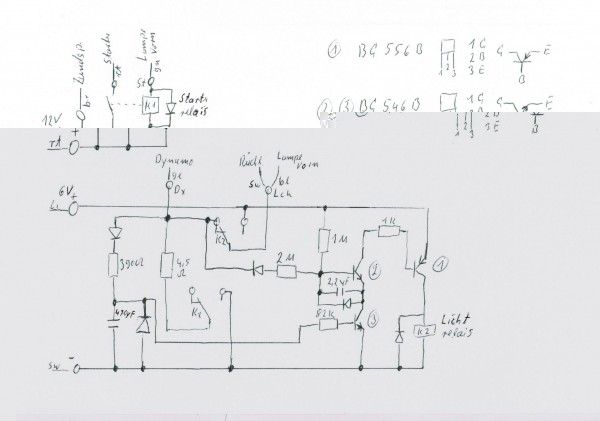 Zündsp
br
Starter
rt
Lampe vorn
gn
St
K1
Starter relais
12V
+
rt
① BC 556 B
1 C
2 B
3 E
1 2 3
C E
B
② (3) BC 546 B
1 C
2 B
3 E
C E
B
Dynamo
ge
Dx
Rückl
sw
Lampe vorn
bl
Lch
6V +
K2
390Ω
4,5 Ω
2M
1M
1K
2,2µF
82K
470µF
②
③
①
K2
Licht relais
sw
-